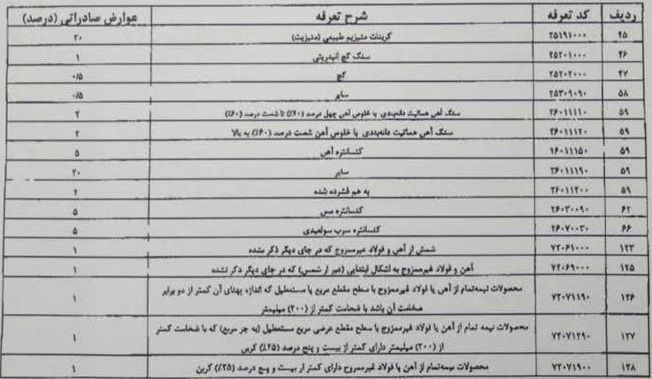 ردیف کد تعرفه شرح تعرفه عوارض صادراتی (درصد)
۴۵ ۲۵۱۹۱۰۰۰ کربنات منیزیم طبیعی (منیزیت) ۲۰
۴۶ ۲۵۲۰۱۰۰۰ سنگ گچ انیدریتی ۱
۴۷ ۲۵۲۰۲۰۰۰ گچ ۰/۵
۵۸ ۲۵۳۰۹۰۹۰ سایر ۰/۵
۵۹ ۲۶۰۱۱۱۱۰ سنگ آهن هماتیت دانه‌بندی با خلوص آهن چهل درصد (۴۰٪) تا شصت درصد (۶۰٪) ۲
۵۹ ۲۶۰۱۱۱۲۰ سنگ آهن هماتیت دانه‌بندی با خلوص آهن شصت درصد (۶۰٪) به بالا ۲
۵۹ ۲۶۰۱۱۱۵۰ کنسانتره آهن ۵
۵۹ ۲۶۰۱۱۱۹۰ سایر ۲۰
۵۹ ۲۶۰۱۱۲۰۰ به هم فشرده شده ۲
۶۲ ۲۶۰۳۰۰۹۰ کنسانتره مس ۵
۶۶ ۲۶۰۷۰۰۳۰ کنسانتره سرب سولفیدی ۵
۱۲۳ ۷۲۰۶۱۰۰۰ شمش از آهن و فولاد غیرممزوج که در جای دیگر ذکر نشده ۱
۱۲۵ ۷۲۰۶۹۰۰۰ آهن و فولاد غیرممزوج به اشکال ابتدایی (غیر از شمس) که در جای دیگر ذکر نشده ۱
۱۲۶ ۷۲۰۷۱۱۹۰ محصولات نیمه‌تمام از آهن یا فولاد غیرممزوج با سطح مقطع مربع یا مستطیل که اندازه پهنای آن کمتر از دو برابر
ضخامت آن باشد با ضخامت کمتر از (۲۰۰) میلیمتر ۱
۱۲۷ ۷۲۰۷۱۲۹۰ محصولات نیمه تمام از آهن یا فولاد غیرممزوج با سطح مقطع عرضی مربع مستطیل (به جز مربع) که با ضخامت کمتر
از (۲۰۰) میلیمتر دارای کمتر از بیست و پنج درصد (۲۵٪) کربن ۱
۱۲۸ ۷۲۰۷۱۹۰۰ محصولات نیمه‌تمام از آهن یا فولاد غیرممزوج دارای کمتر از بیست و پنج درصد (۲۵٪) کربن ۱